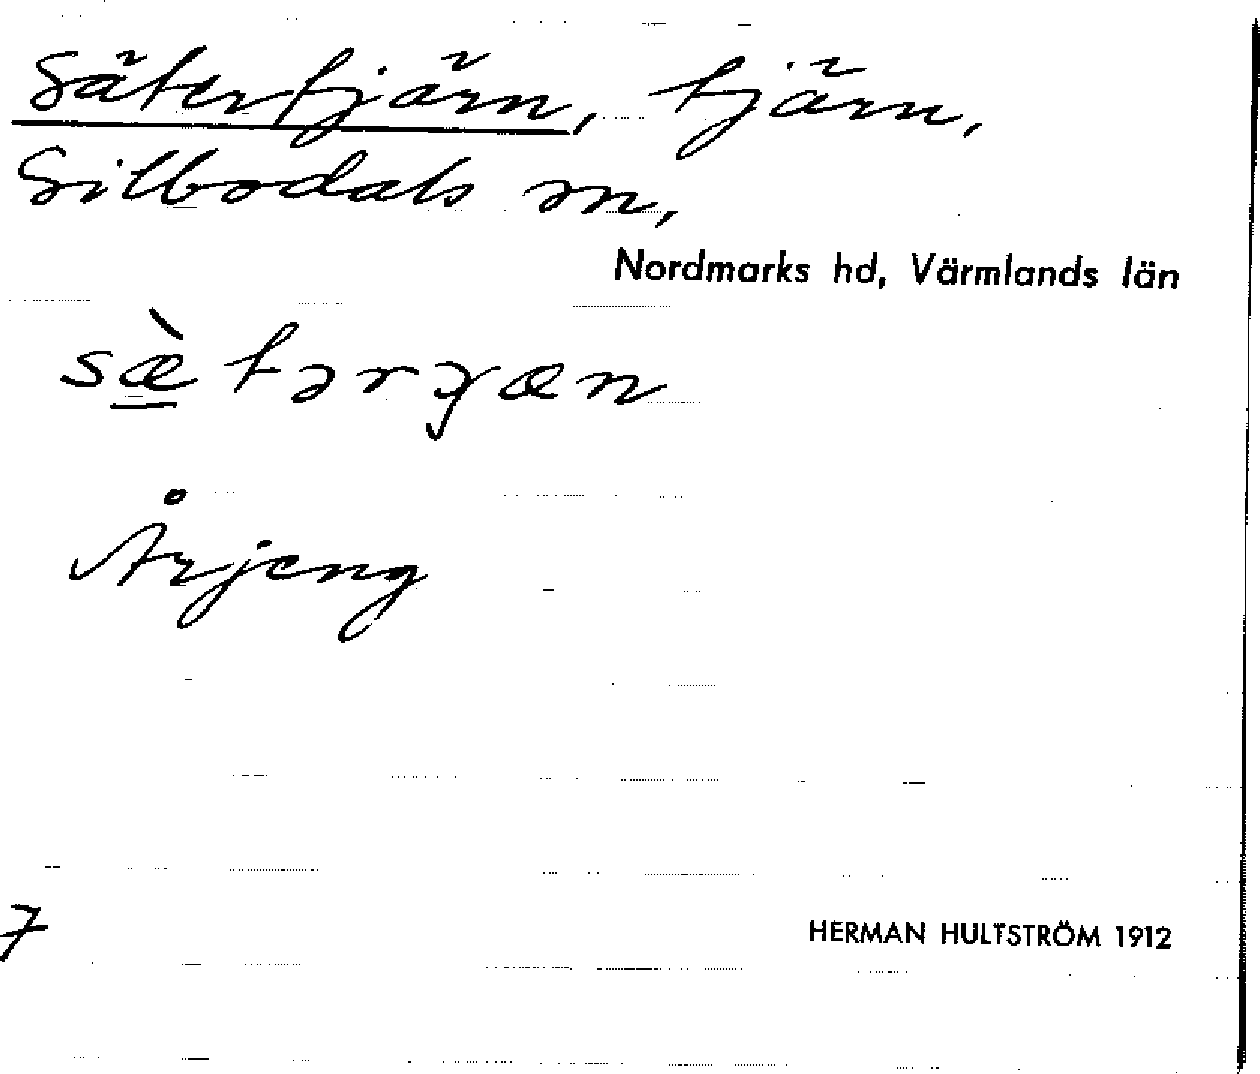 Sätertjärn, tjärn,
Silbodals sn,
Nordmarks hd, Värmlands län
sæ̀tərɣæn
Årjeng
7
HERMAN HULTSTRÖM 1912